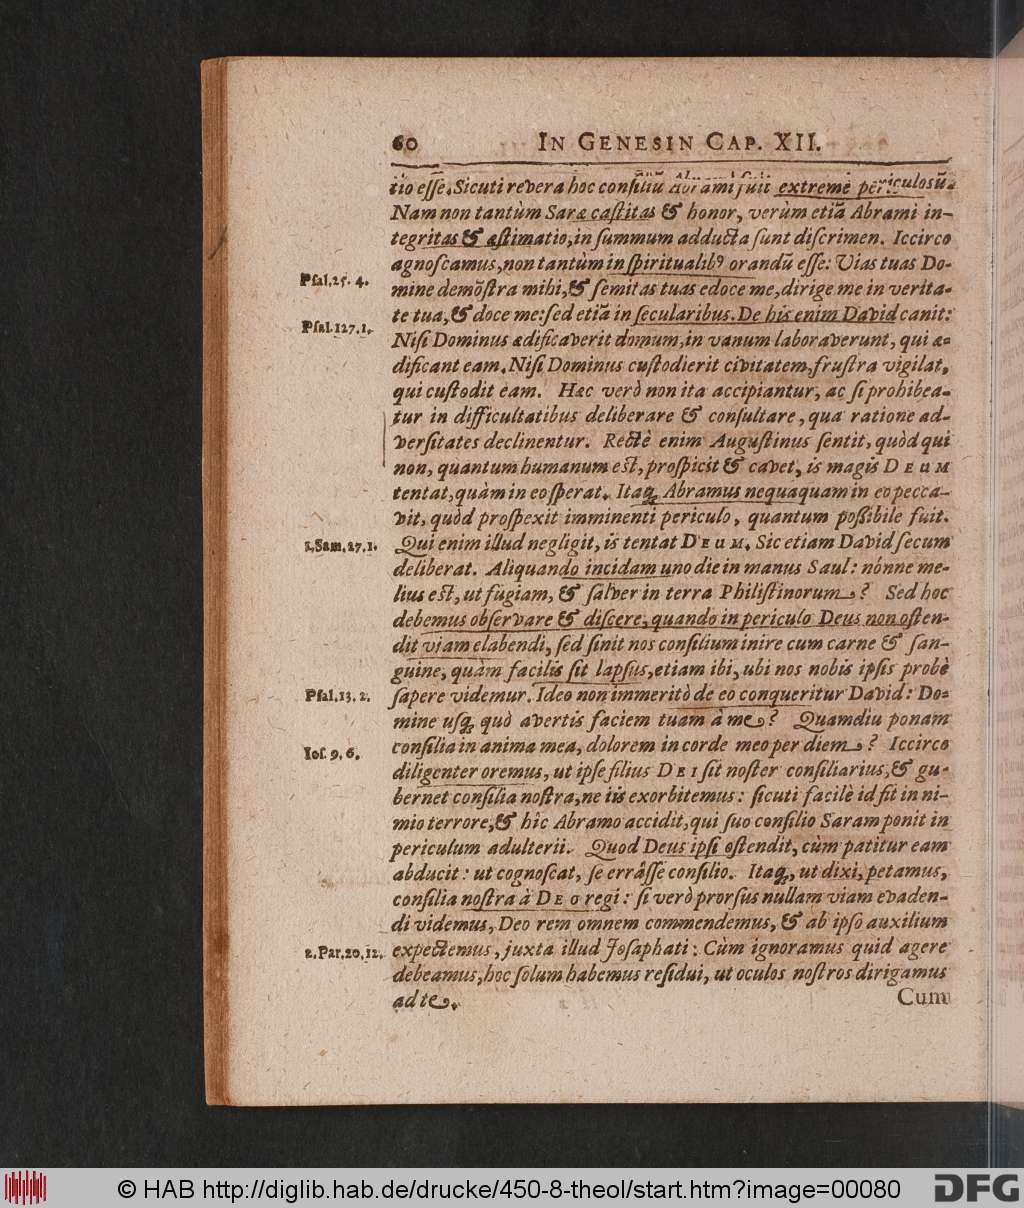 60 IN GENESIN CAP. XII.
tio eſſe. Sicuti revera hoc conſiliū Abrami fuit extremè periculosū.
Nam non tantùm Saræ caſtitas & honor, verùm etiā Abrami in-
tegritas & æſtimatio, in ſummum adducta ſunt diſcrimen. Iccirco
agnoſcamus, non tantùm in ſpiritualibꝰ orandū eſſe: Vias tuas Do-
Pſal. 25. 4. mine demōſtra mihi, & ſemitas tuas edoce me, dirige me in verita-
te tua, & doce me: ſed etiā in ſecularibus. De his enim David canit:
Pſal. 127. 1. Niſi Dominus ædificaverit domum, in vanum laboraverunt, qui æ-
dificant eam. Niſi Dominus cuſtodierit civitatem, fruſtra vigilat,
qui cuſtodit eam. Hæc verò non ita accipiantur, ac ſi prohibea-
tur in difficultatibus deliberare & conſultare, qua ratione ad-
verſitates declinentur. Rectè enim Auguſtinus ſentit, quòd qui
non, quantum humanum eſt, proſpicit & cavet, is magis DEUM
tentat, quàm in eo ſperat. Itaq́; Abramus nequaquam in eo pecca-
vit, quòd proſpexit imminenti periculo, quantum poſſibile fuit.
1. Sam. 27. 1. Qui enim illud negligit, is tentat DEUM. Sic etiam David ſecum
deliberat. Aliquando incidam uno die in manus Saul: nónne me-
lius eſt, ut fugiam, & ſalver in terra Philiſtinorum? Sed hoc
debemus obſervare & diſcere, quando in periculo Deus non oſten-
dit viam elabendi, ſed ſinit nos conſilium inire cum carne & ſan-
guine, quàm facilis ſit lapſus, etiam ibi, ubi nos nobis ipſis probè
Pſal. 13. 2. ſapere videmur. Ideo non immeritò de eo conqueritur David: Do-
mine uſq́; quò avertis faciem tuam à me? Quamdiu ponam
Ioſ. 9. 6. conſilia in anima mea, dolorem in corde meo per diem? Iccirco
diligenter oremus, ut ipſe filius DEI ſit noſter conſiliarius, & gu-
bernet conſilia noſtra, ne iis exorbitemus: ſicuti facilè id fit in ni-
mio terrore, & hîc Abramo accidit, qui ſuo conſilio Saram ponit in
periculum adulterii. Quod Deus ipſi oſtendit, cùm patitur eam
abduci: ut cognoſcat, ſe errâſſe conſilio. Itaq́;, ut dixi, petamus,
conſilia noſtra à DEO regi: ſi verò prorſus nullam viam evaden-
di videmus, Deo rem omnem commendemus, & ab ipſo auxilium
2. Par. 20. 12. expectemus, juxta illud Joſaphati: Cùm ignoramus quid agere
debeamus, hoc ſolum habemus reſidui, ut oculos noſtros dirigamus
ad te.
Cum
© HAB http://diglib.hab.de/drucke/450-8-theol/start.htm?image=00080
DFG